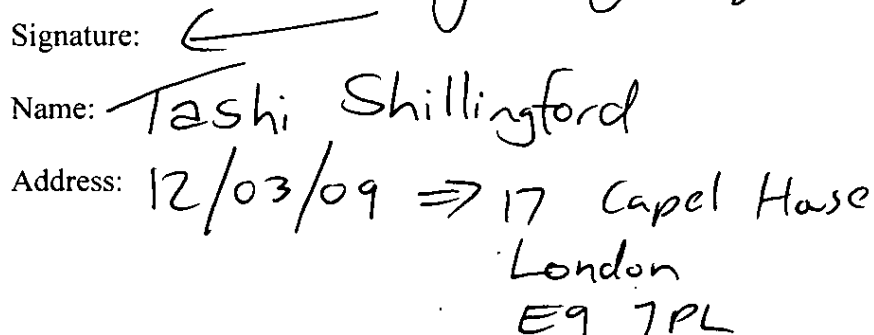 Signature:
Name: Tashi Shillingford
Address: 12/03/09 ⇒ 17 Capel House
London
E9 7PL